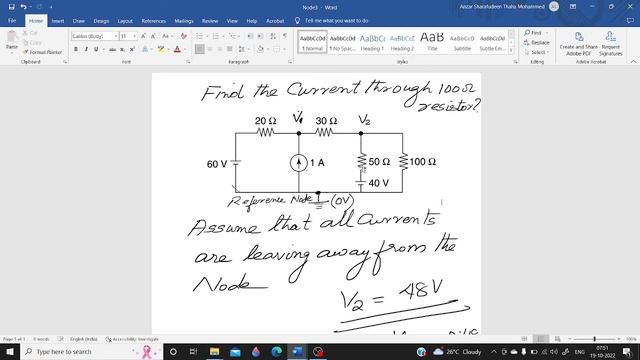 Node3 - Word
Anzar Sharafudeen Thaha Mohammed
File Home Insert Draw Design Layout References Mailings Review View Help Acrobat Tell me what you want to do
Paste
Cut
Copy
Format Painter
Clipboard
Calibri (Body) 11
Font
Paragraph
AaBbCcDd AaBbCcDd AaBbCc AaBbCcD AaB AaBbCcD AaBbCcDd
1 Normal 1 No Spac... Heading 1 Heading 2 Title Subtitle Subtle Em...
Styles
Find
Replace
Select
Editing
Create and Share Adobe PDF
Request Signatures
Adobe Acrobat
Find the Current through 100Ω
resistor?
20 Ω V1 30 Ω V2
60 V 1 A 50 Ω 100 Ω
40 V
Reference Node (0V)
Assume that all Currents
are leaving away from the
Node
V2 = 48V
Page 1 of 1 0 words English (India) Accessibility: Investigate
100%
Type here to search
26°C Cloudy
ENG
07:51
19-10-2022